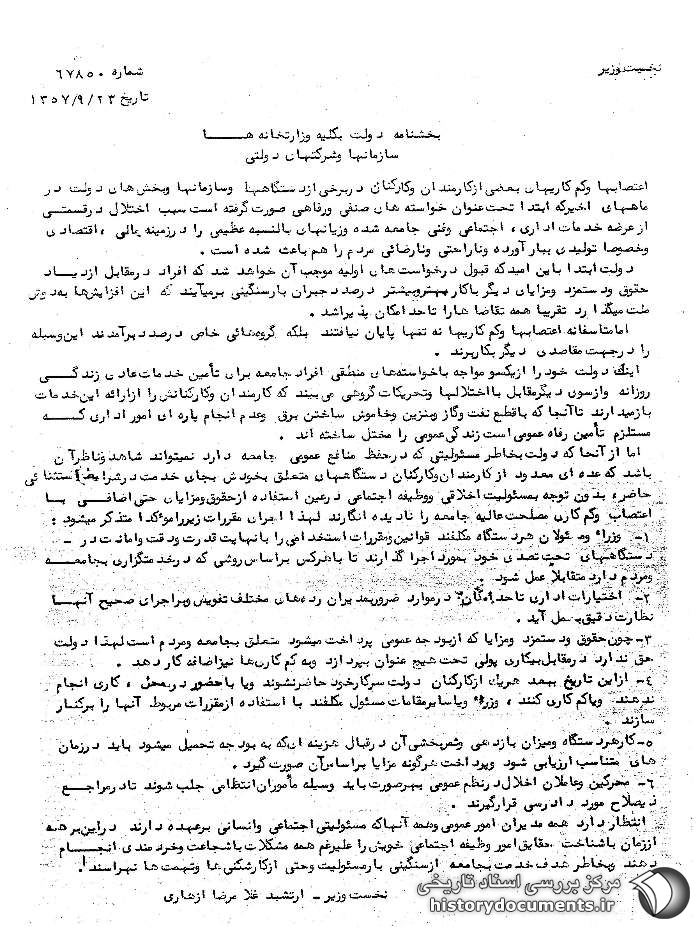 نخست وزیر
شماره ۶۷۸۵۰
تاریخ ۱۳۵۷/۹/۲۳
بخشنامه دولت بکلیه وزارتخانه هـــا
سازمانها وشرکتهای دولتی
اعتصابها وکم کاریهای بعضی ازکارمندان وکارکنان دربرخی ازدستگاهها وسازمانها وبخش های دولت در
ماههای اخیرکه ابتدا تحت عنوان خواسته های صنفی ورفاهی صورت گرفته است سبب اختلال درقسمتی
ازعرضه خدمات اداری، اجتماعی وفنی جامعه شده وزیانهای بالنسبه عظیمی را درزمینه مالی، اقتصادی
وخصوصا تولیدی ببار آورده وناراحتی ونارضائی مردم را هم باعث شده است .
دولت ابتدا باین امیدکه قبول درخواست های اولیه موجب آن خواهد شد که افراد درمقابل ازدیـاد
حقوق ودستمزد ومزایای دیگر باکار بهتروبیشتر درصدد جبران بارسنگینی برمیآیند که این افزایش ها به دوش
ملت میگذارد تقریبا همه تقاضا هارا تاحد امکان پذیرا شد .
امامتاسفانه اعتصابها وکم کاریها نه تنها پایان نیافتند بلکه گروههائی خاص درصدد برآمدند این وسیله
را درجهت مقاصدی دیگر بکاربرند .
اینک دولت خود را ازیکسو مواجه باخواسته های منطقی افراد جامعه برای تأمین خدمات عادی زندگـی
روزانه وازسوی دیگر مقابل با اختلالها وتحریکات گروهی می بیند که کارمندان وکارکنانش را ازارائه این خدمات
بازمیدارند تاآنجا که باقطع نفت وگاز وبنزین وخاموش ساختن برق وعدم انجام پاره ای امور اداری کـــه
مستلزم تأمین رفاه عمومی است زندگی عمومی را مختل ساخته اند .
اما از آنجا که دولت بخاطر مسئولیتی که درحفظ منافع عمومی جامعه دارد نمیتواند شاهد وناظرآن
باشد که عده ای معدود از کارمندان وکارکنان دستگاههای متعلق بخودش بجای خدمت درشرایط استثنائی
حاضر، بدون توجه بمسئولیت اخلاقی ووظیفه اجتماعی درعین استفاده ازحقوق ومزایای حتی اضافـی بـا
اعتصاب وکم کاری مصلحت عالیه جامعه را نادیده انگارند لهذا اجرای مقررات زیررا موکدا متذکر میشود :
۱- وزراء ومسئولان هر دستگاه مکلفند قوانین ومقررات استخدامی را بانهایت قدرت ودقت وامانت در -
دستگاههای تحت تصدی خود بمورد اجرا گذارند تا باهرکس براساس روشی که درخدمتگزاری بجامعـــه
ومردم دارد متقابلا عمل شود .
۲- اختیارات اداری تاحد امکان درموارد ضروربمدیران رده های مختلف تفویض وبراجرای صحیح آنهـا
نظارت دقیق بعمل آید .
۳-چون حقوق ودستمزد ومزایا که ازبودجه عمومی پرداخت میشود متعلق بجامعه ومردم است لهذا دولت
حق ندارد درمقابل بیکاری پولی تحت هیچ عنوان بپردازد وبه کم کاری ها نیز اضافه کار دهد .
۴- ازاین تاریخ ببعد هریک ازکارکنان دولت سرکارخود حاضرنشوند ویا باحضور درمحل، کاری انجام
ندهند ویاکم کاری کنند، وزراء ویاسایرمقامات مسئول مکلفند با استفاده ازمقررات مربوط آنها را برکنار
سازند .
۵-کارهردستگاه ومیزان بازدهی وثمربخشی آن درقبال هزینه ای که به بودجه تحمیل میشود باید درزمان
های متناسب ارزیابی شود وپرداخت هرگونه مزایا براساس آن صورت گیرد .
۶- محرکین وعاملان اخلال درنظم عمومی بهرصورت باید وسیله مأموران انتظامی جلب شوند تادرمراجع
ذیصلاح مورد دادرسی قرارگیرند .
انتظار دارد همه مدیران امور عمومی وهمه آنهاکه مسئولیتی اجتماعی وانسانی برعهده دارند دراین برهه
اززمان باشناخت حقایق امور وظیفه اجتماعی خویش را علیرغم همه مشکلات باشجاعت وخردمندی انجـام
دهند وبخاطر هدف خدمت بجامعه ازسنگینی بارمسئولیت وحتی ازکارشکنی ها وتهمت ها نهراسند .
نخست وزیر - ارتشبد غلامرضا ازهاری
مرکز بررسی اسناد تاریخی
historydocuments.ir